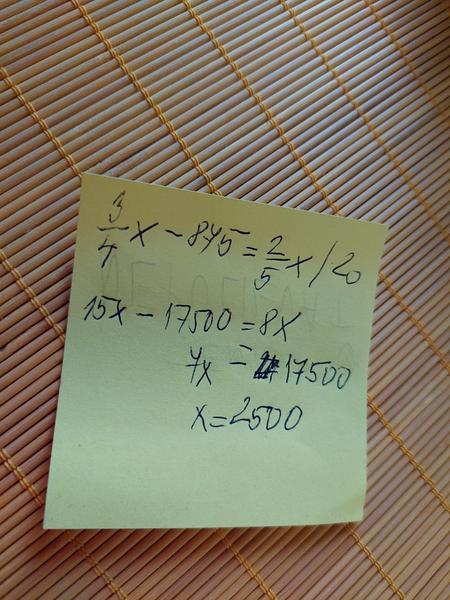 3/4 x - 875 = 2/5 x / 20
15x - 17500 = 8x
7x = 17500
x = 2500